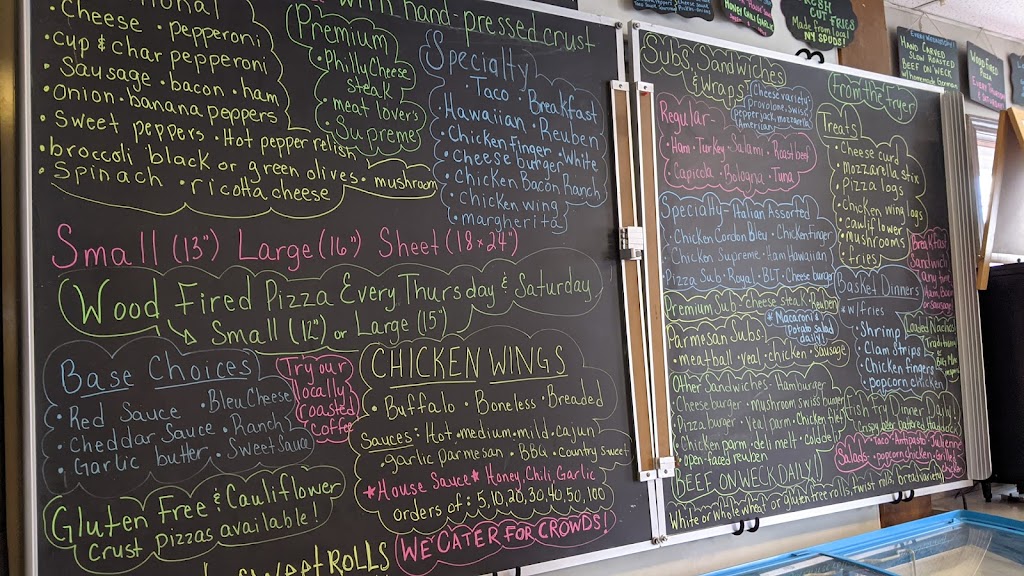 with hand-pressed crust
Cheese • pepperoni
• cup & char pepperoni
• Sausage • bacon • ham
• onion • banana peppers
• Sweet peppers • Hot pepper relish
• broccoli • black or green olives • mushroom
• Spinach • ricotta cheese
Premium
• Philly Cheese
steak
• meat lover's
• Supreme
Specialty
• Taco • Breakfast
Hawaiian • Reuben
Chicken finger • White
• Cheeseburger
• Chicken Bacon Ranch
• Chicken wing
• margherita
Small (13") Large (16") Sheet (18 x 24")
Wood Fired Pizza Every Thursday & Saturday
Small (12") or Large (15")
Base Choices
• Red Sauce • Bleu Cheese
• Cheddar Sauce • Ranch
• Garlic butter • Sweet Sauce
Try our
locally
roasted
coffee
CHICKEN WINGS
• Buffalo • Boneless • Breaded
Sauces: Hot • medium • mild • cajun
• garlic parmesan • BBQ • Country Sweet
* House Sauce * Honey, Chili, Garlic
orders of: 5, 10, 20, 30, 40, 50, 100
Gluten Free & Cauliflower
Crust pizzas available!
WE CATER FOR CROWDS!
Sweet ROLLS
Subs, Sandwiches
& Wraps
Cheese variety
provolone, swiss
pepper jack, mozzarella
American
Regular
• Ham • Turkey • Salami • Roast beef
Capicola • Bologna • Tuna
Specialty - Italian Assorted
• Chicken Cordon Bleu • Chicken finger
Chicken Supreme • Ham Hawaiian
Pizza Sub • Royal • BLT • Cheese burger
Premium Subs • cheese steak • Reuben
Parmesan Subs
• meatball • veal • chicken • sausage
* Macaroni &
Potato salad
daily!
Other Sandwiches • Hamburger
Cheeseburger • mushroom swiss burger
Pizza burger • veal parm • chicken fried
chicken parm • deli melt
• open-faced reuben
BEEF ON WECK DAILY!
White or whole wheat or gluten free rolls, twist rolls, bread variety
From the fryer
Treats
• Cheese curd
• mozzarella stix
• Pizza logs
• chicken wing logs
• cauliflower
• mushrooms
• fries
Breakfast
Sandwich
any time
Ham, Bacon
or sausage
Basket Dinners
* w/fries
• Shrimp
• Clam Strips
• Chicken fingers
• popcorn chicken
Loaded Nachos
Fish fry Dinner Daily!
Crispy beer battered haddock
Salads
• taco • Antipasto • Julienne
• popcorn chicken
FRESH
CUT FRIES
Made from local
NY SPUDS
EVERY WEDNESDAY!
HAND CARVED
SLOW ROASTED
BEEF ON WECK
WOOD FIRED
PIZZA